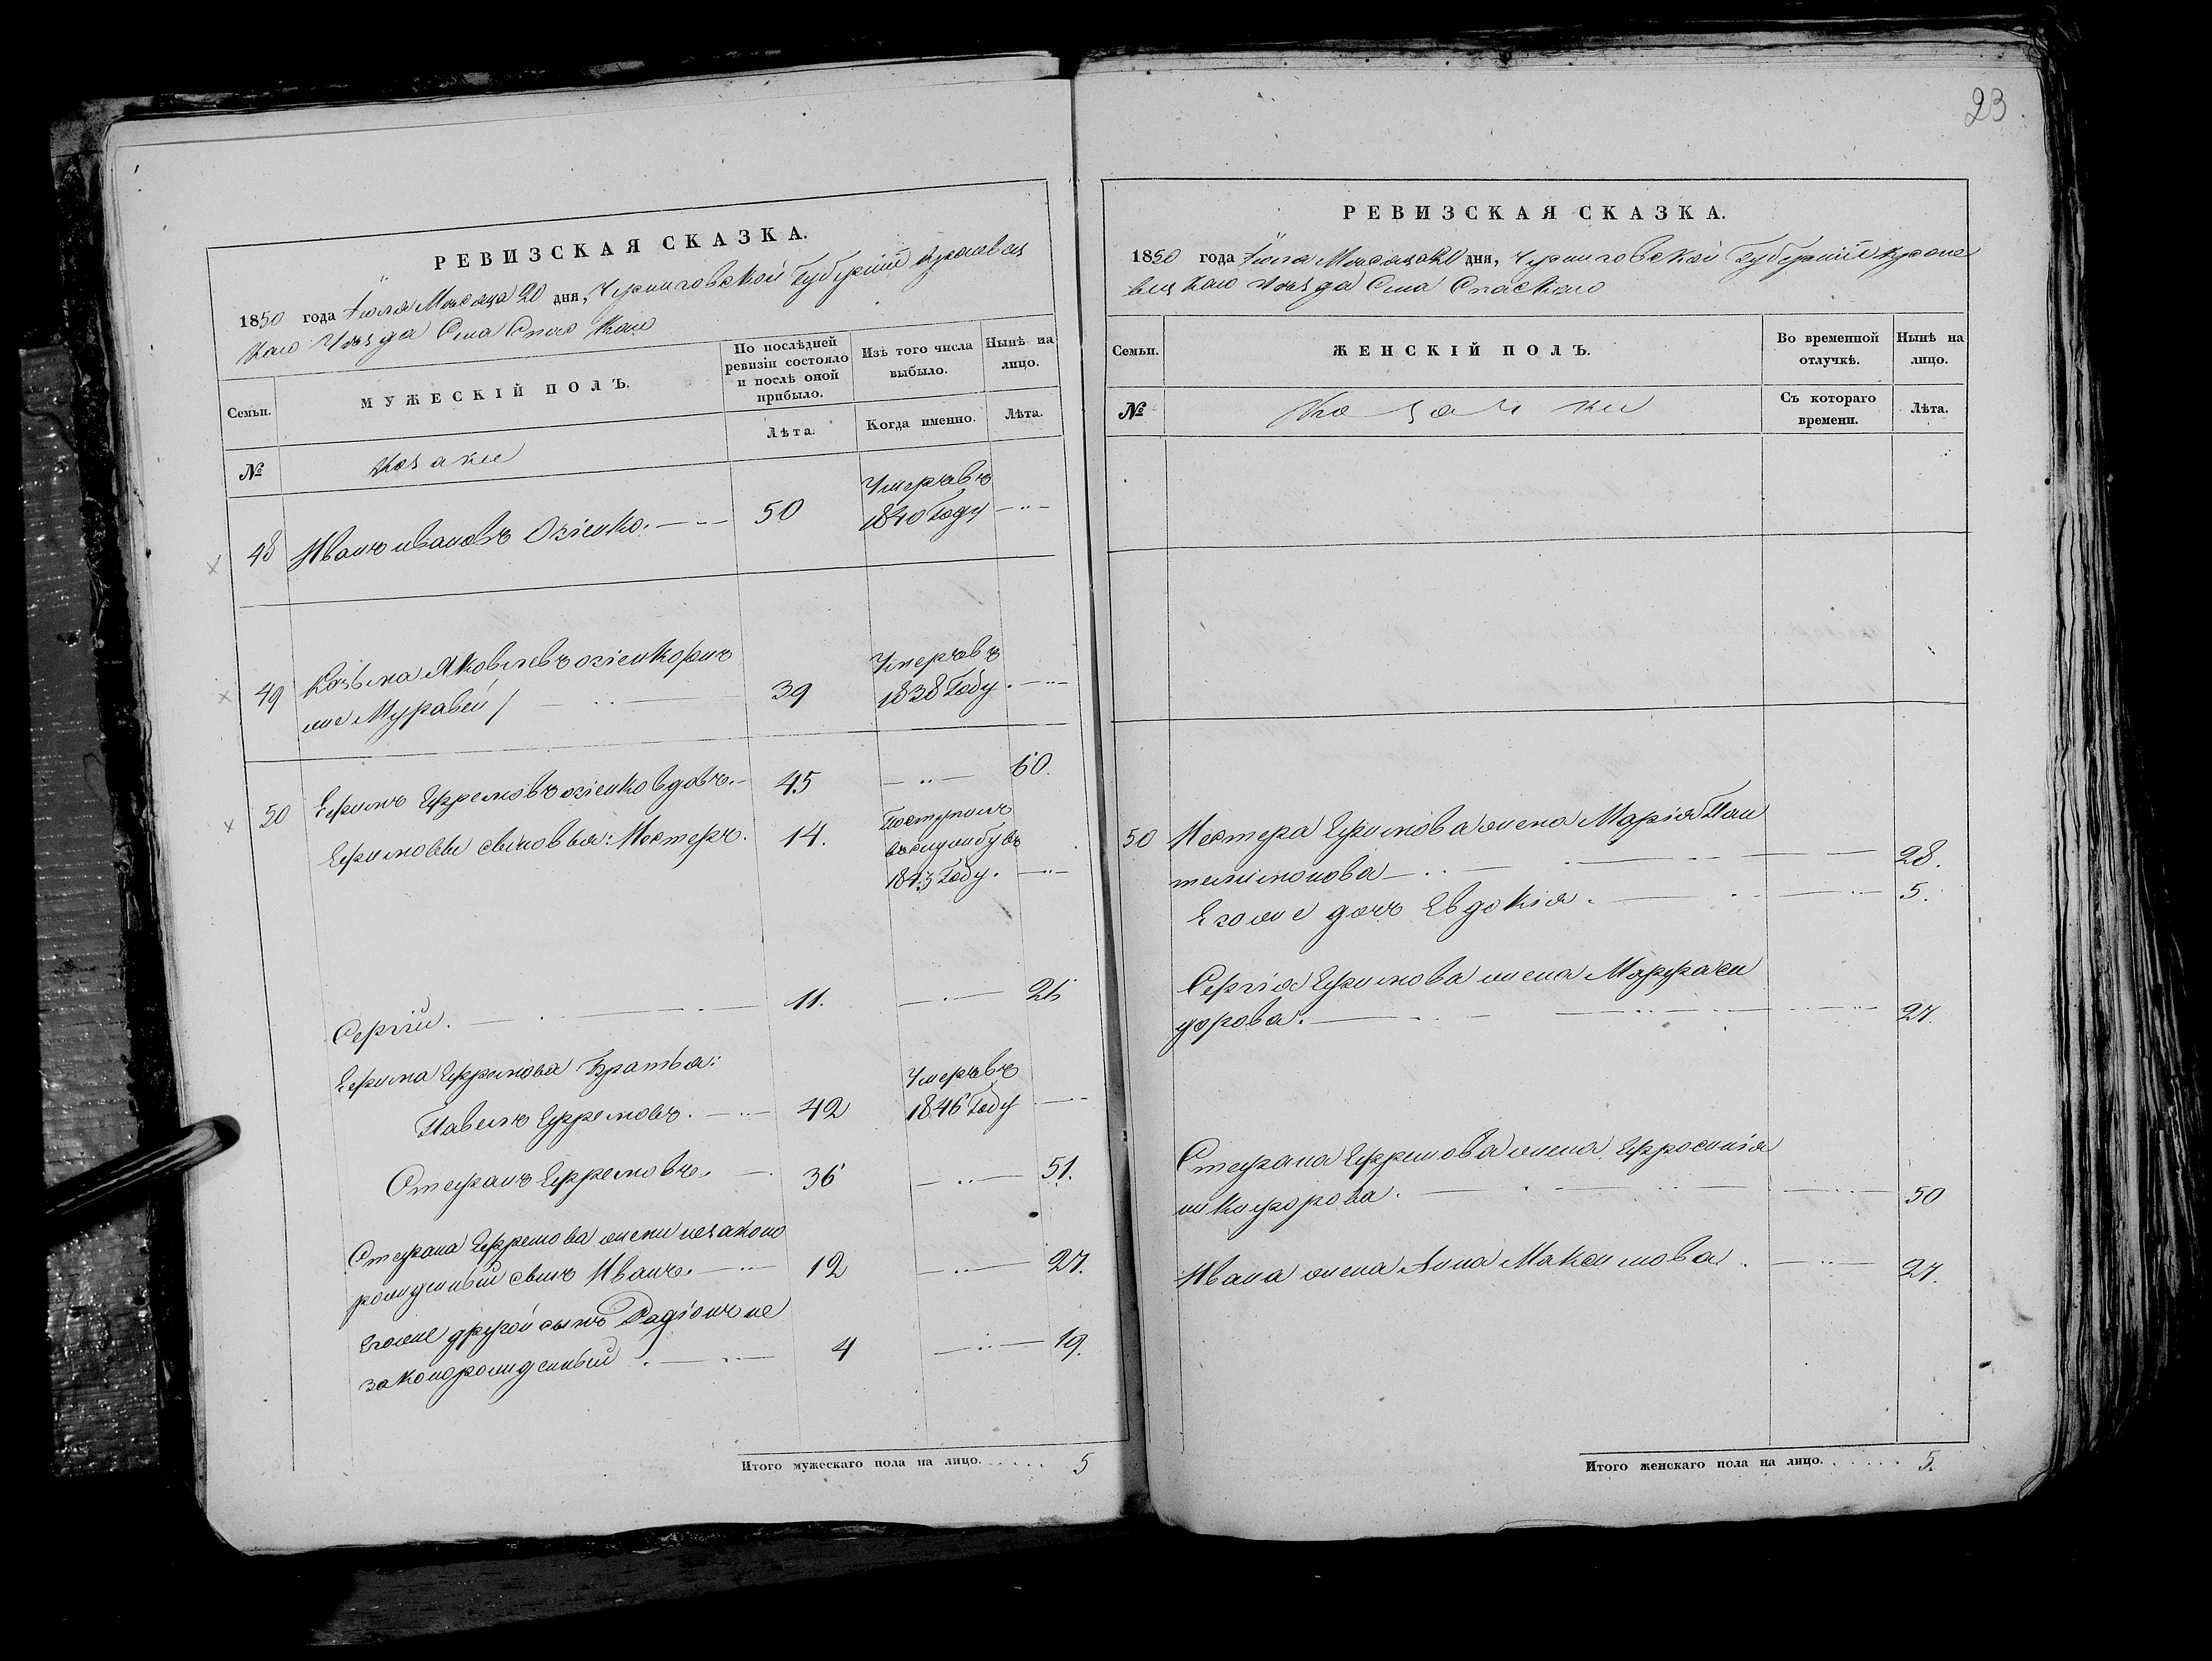 23
РЕВИЗСКАЯ СКАЗКА.
1850 года Іюля Мѣсяца 20 дня, Черниговской Губерніи Кролевец
каго Уѣзда Села Спаскаго
Семьи.
МУЖЕСКІЙ ПОЛЪ.
По послѣдней
ревизіи состояло
и послѣ оной
прибыло.
Изъ того числа
выбыло.
Нынѣ на
лицо.
№
Козаки
Лѣта.
Когда именно.
Лѣта.
48 Иванъ ивановъ Озіенко. 50 Умеръ въ
1840 Году
49 Козьма Яковлевъ озіенко /онъ
же Муравей/ 39 Умеръ въ
1838 Году.
50 Ефимъ Ефремовъ озіенко вдовъ. 45 60.
Ефимовы сыновья: Нестеръ. 14. Поступилъ
въ службу въ
1843 Году.
Сергій. 11. 26
Ефима Ефремова Братья:
Павелъ Ефремовъ. 42 Умеръ въ
1846 Году
Стефанъ Ефремовъ. 36 51.
Стефана Ефремова жены незаконо
рожденный сынъ Иванъ. 12 27.
Егоже другой сынъ Радіонъ не
законорожденный. 4 19.
Итого мужескаго пола на лицо. 5
РЕВИЗСКАЯ СКАЗКА.
1850 года Іюля Мѣсяца 20 дня, Черниговской Губерніи Кроле
вецкаго Уѣзда Села Спаскаго
Семьи.
ЖЕНСКІЙ ПОЛЪ.
Во временной
отлучкѣ.
Нынѣ на
лицо.
№
Козачки
Съ котораго
времени.
Лѣта.
50 Нестера Ефимова жена Марія Пан
телимонова 28.
Егоже дочь Евдокія. 5.
Сергія Ефимова жена Марфа си
дорова. 27.
Стефана Ефремова жена Ефросинія
никифорова. 50
Ивана жена Анна Максимова. 27.
Итого женскаго пола на лицо. 5.